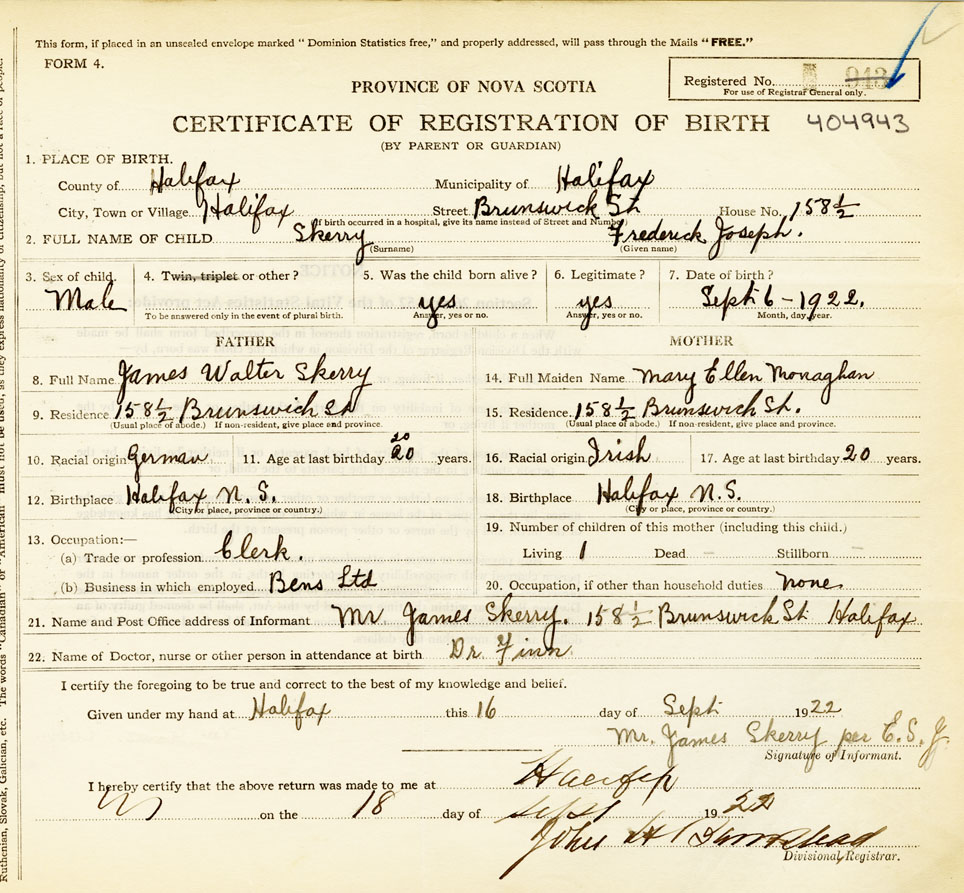 This form, if placed in an unsealed envelope marked "Dominion Statistics free," and properly addressed, will pass through the Mails "FREE."
FORM 4.
Registered No. 943
For use of Registrar General only.
PROVINCE OF NOVA SCOTIA
CERTIFICATE OF REGISTRATION OF BIRTH 404943
(BY PARENT OR GUARDIAN)
1. PLACE OF BIRTH.
County of Halifax Municipality of Halifax
City, Town or Village Halifax Street Brunswick St House No. 158½
(If birth occurred in a hospital, give its name instead of Street and Number)
2. FULL NAME OF CHILD Skerry Frederick Joseph.
(Surname) (Given name)
3. Sex of child. 4. Twin, triplet or other? 5. Was the child born alive? 6. Legitimate? 7. Date of birth?
Male yes yes Sept 6-1922.
To be answered only in the event of plural birth. Answer, yes or no. Answer, yes or no. Month, day, year.
FATHER MOTHER
8. Full Name James Walter Skerry 14. Full Maiden Name Mary Ellen Monaghan
9. Residence 158½ Brunswick St 15. Residence 158½ Brunswick St.
(Usual place of abode.) If non-resident, give place and province. (Usual place of abode.) If non-resident, give place and province.
10. Racial origin German 11. Age at last birthday 20 20 years. 16. Racial origin Irish 17. Age at last birthday 20 years.
12. Birthplace Halifax N.S. 18. Birthplace Halifax N.S.
(City or place, province or country.) (City or place, province or country.)
13. Occupation:— 19. Number of children of this mother (including this child.)
(a) Trade or profession Clerk. Living 1 Dead – Stillborn –
(b) Business in which employed Bens Ltd 20. Occupation, if other than household duties none
21. Name and Post Office address of Informant Mr James Skerry. 158½ Brunswick St Halifax
22. Name of Doctor, nurse or other person in attendance at birth Dr. Finn
I certify the foregoing to be true and correct to the best of my knowledge and belief.
Given under my hand at Halifax this 16 day of Sept 1922
Mr. James Skerry per E. S. J.
Signature of Informant.
I hereby certify that the above return was made to me at Halifax
on the 18 day of Sept 1922
John H
Divisional Registrar.